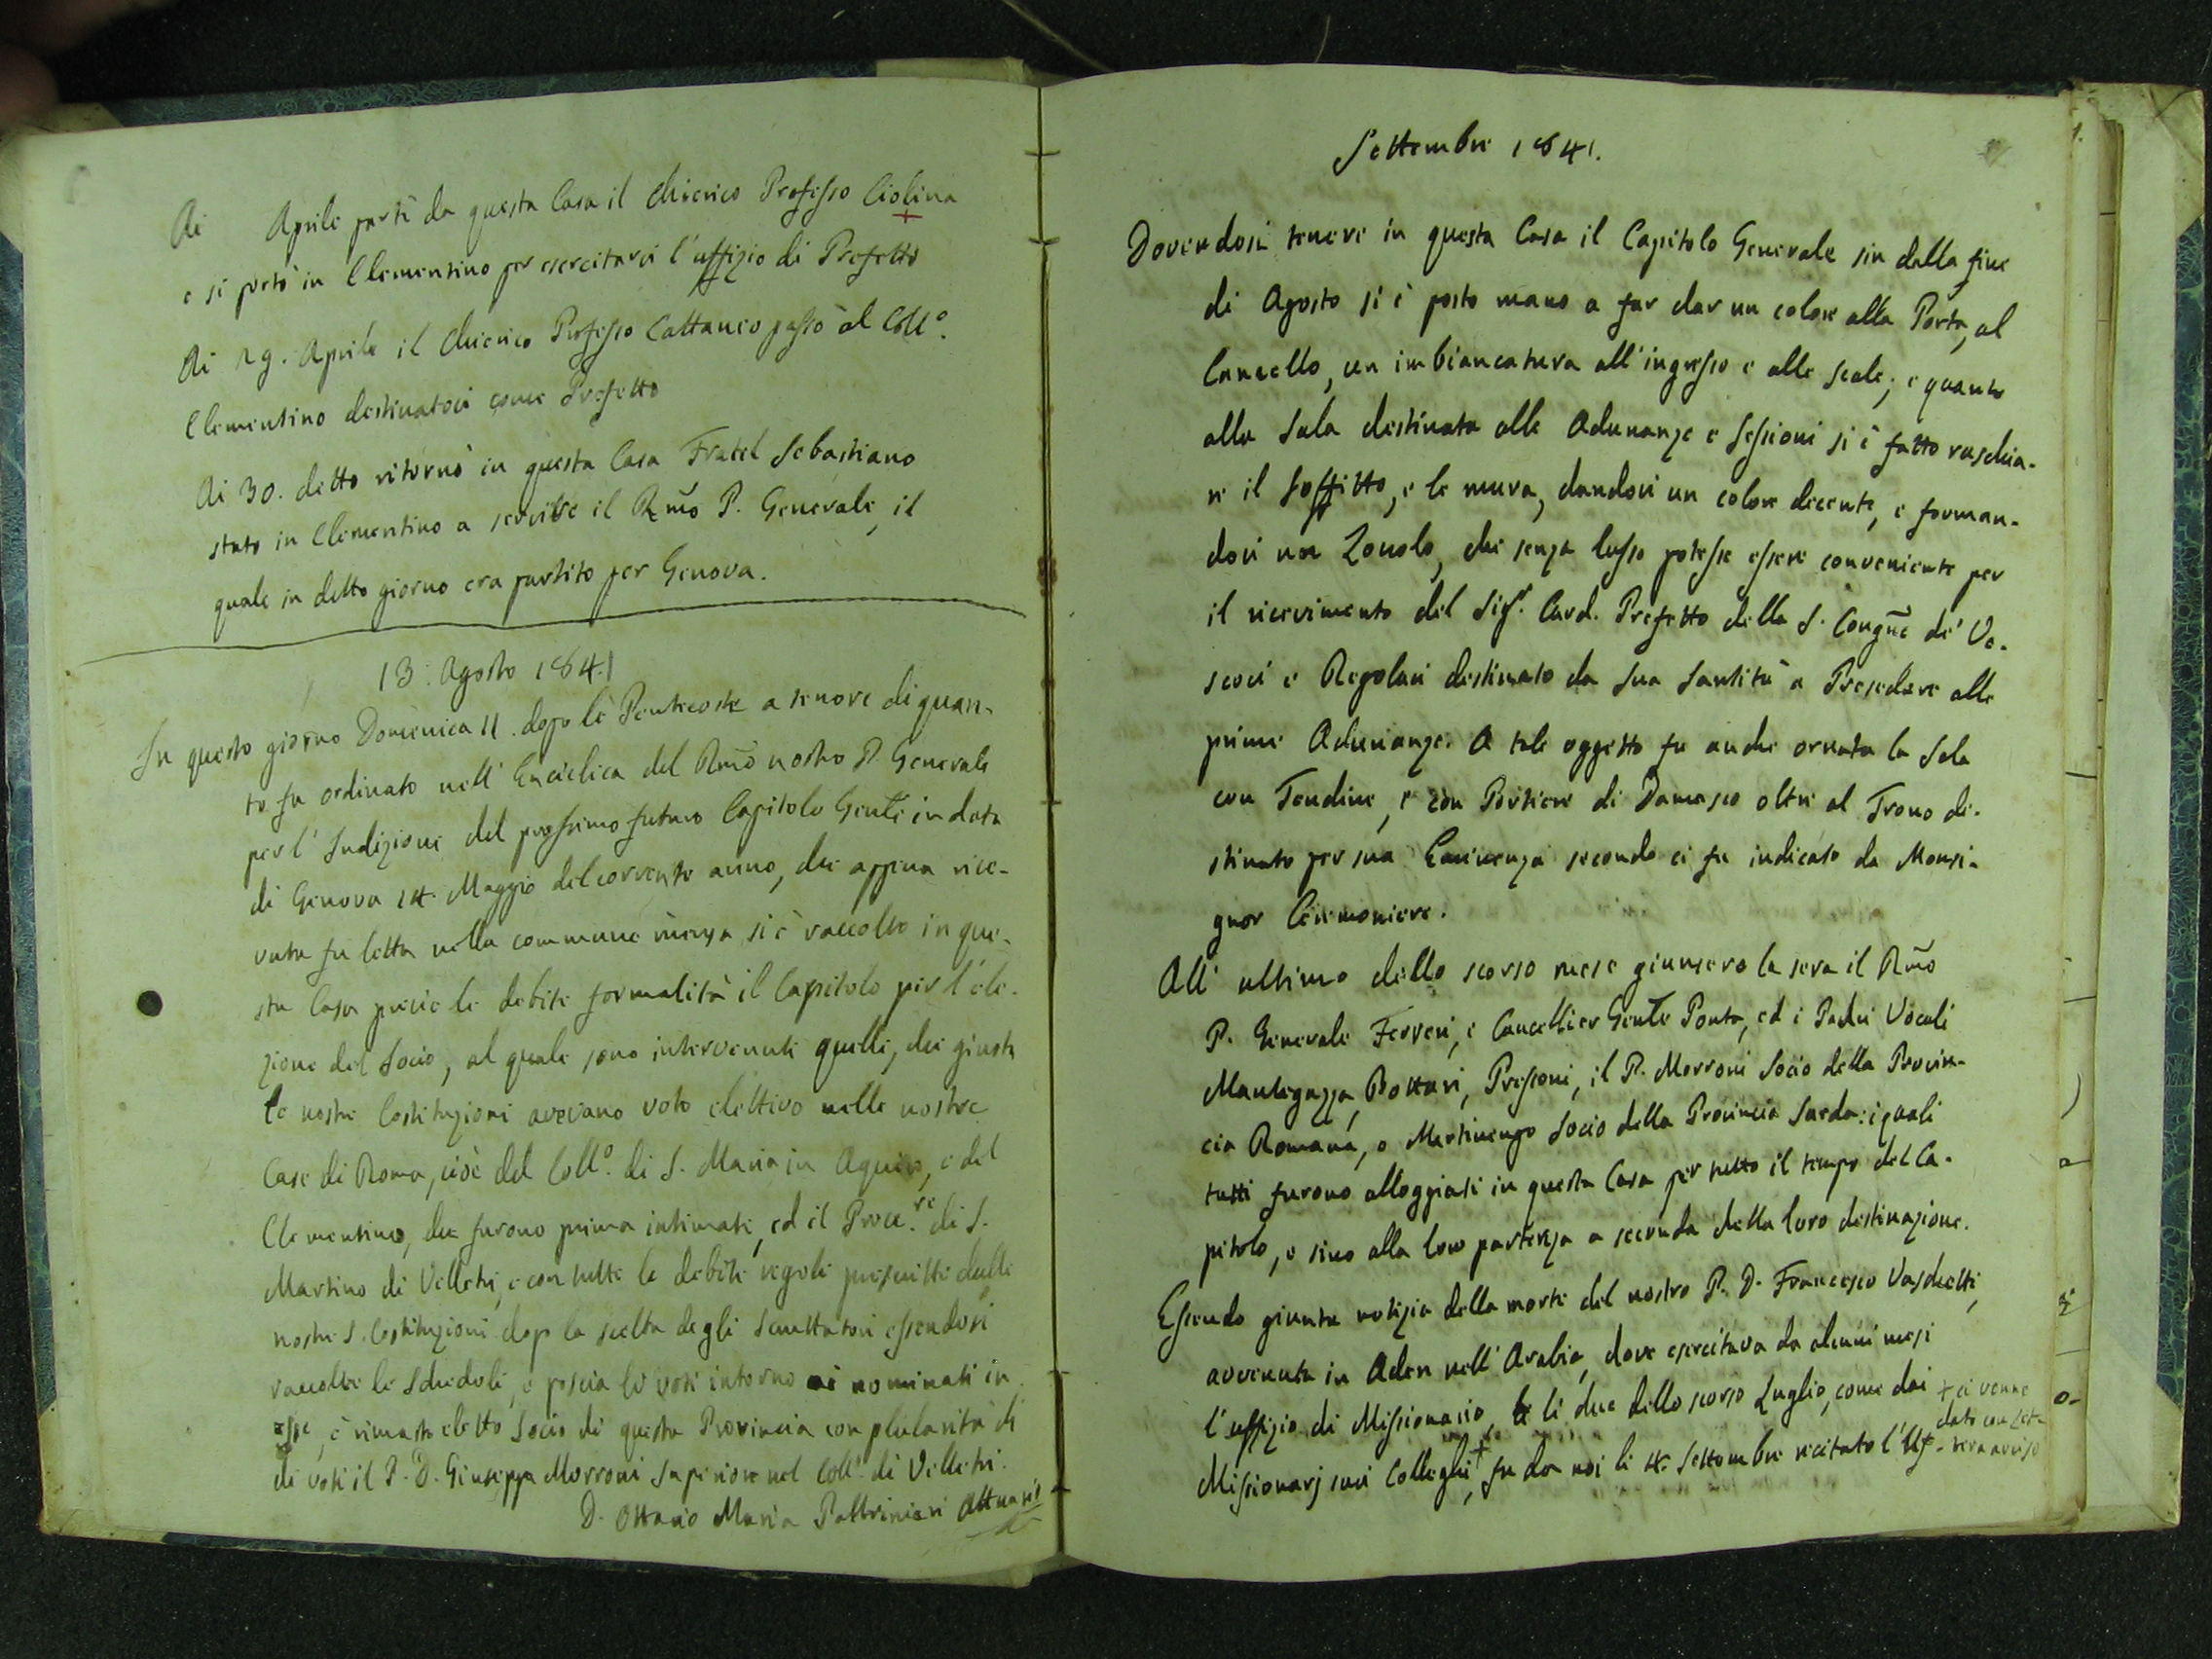 Ai Aprile partì da questa Casa il Chierico Professo Ciolina
e si portò in Clementino per esercitarvi l'uffizio di Prefetto
Ai 29. Aprile il Chierico Professo Cattaneo passò al Coll.º
Clementino destinatovi come Prefetto
Ai 30. detto ritornò in questa Casa Fratel Sebastiano
stato in Clementino a servire il Rmo P. Generale, il
quale in detto giorno era partito per Genova.
13. Agosto 1841
In questo giorno Domenica 11. dopo le Pentecoste a tenore di quan-
to fu ordinato nell' Enciclica del Rmo nostro P. Generale
per l' Indizione del prossimo futuro Capitolo Genle in data
di Genova 14. Maggio del corrente anno, che appena rice-
vuta fu letta nella commune mensa si è raccolto in que-
sta Casa previe le debite formalità il Capitolo per l'ele-
zione del Socio, al quale sono intervenuti quelli, che giusta
le nostre Costituzioni avevano voto elettivo nelle nostre
Case di Roma, cioè del Coll.º di S. Maria in Aquiro, e del
Clementino, che furono prima intimati, ed il Procu.re di S.
Martino di Velletri, e con tutte le debite regole prescritte dalle
nostre S. Costituzioni dopo la scelta degli Scruttatori essendosi
raccolte le Schedole, e poscia li voti intorno ai nominati in
esse, è rimasto eletto Socio di questa Provincia con plularità di
di voti il P. D. Giuseppe Morroni Superiore nel Coll.º di Velletri.
D. Ottavio Maria Paltrinieri Attuario
Settembre 1841.
Dovendosi tenere in questa Casa il Capitolo Generale sin dalla fine
di Agosto si è posto mano a far dar un colore alla Porta, al
Cancello, un imbiancatura all'ingresso e alle scale; e quanto
alla Sala destinata alle Adunanze e Sessioni si è fatto raschia-
re il Soffitto, e le mura, dandovi un colore decente, e forman-
dovi un Zoccolo, che senza lusso potesse essere conveniente per
il ricevimento del Sigr. Card. Prefetto della S. Congne de' Ve-
scovi e Regolari destinato da Sua Santità a Presedere alle
prime Adunanze. A tale oggetto fu anche ornata la Sala
con Tendine, e con Portiere di Damasco oltre al Trono de-
stinato per sua Eminenza secondo ci fu indicato da Monsi-
gnor Cerimoniere.
All' ultimo dello scorso mese giunsero la sera il Rmo
P. Generale Ferreri, e Cancellier Genle Ponta, ed i Padri Vocali
Mantegazza, Bottari, Pressoni, il P. Morroni Socio della Provin-
cia Romana, e Martinengo Socio della Provincia Sarda: i quali
tutti furono alloggiati in questa Casa per tutto il tempo del Ca-
pitolo, e sino alla loro partenza a seconda della loro destinazione.
Essendo giunta notizia della morte del nostro P. D. Francesco Vaschetti,
avvenuta in Aden nell' Arabia, dove esercitava da alcuni mesi
l'uffizio di Missionario, li due dello scorso Luglio, come dai
Missionarj suoi Colleghi +, fu da noi li 4. Settembre recitato l'Uf-
+ ci venne
dato con let-
tera avviso